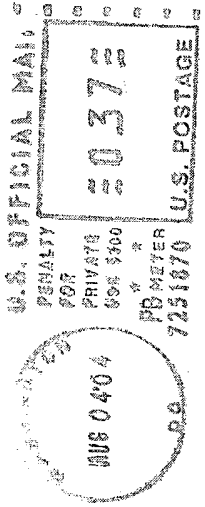 U.S. OFFICIAL MAIL
PENALTY
FOR
PRIVATE
USE $300
★ ★
PB METER
7251870
037
U.S. POSTAGE
AUG 04 04
D.C.